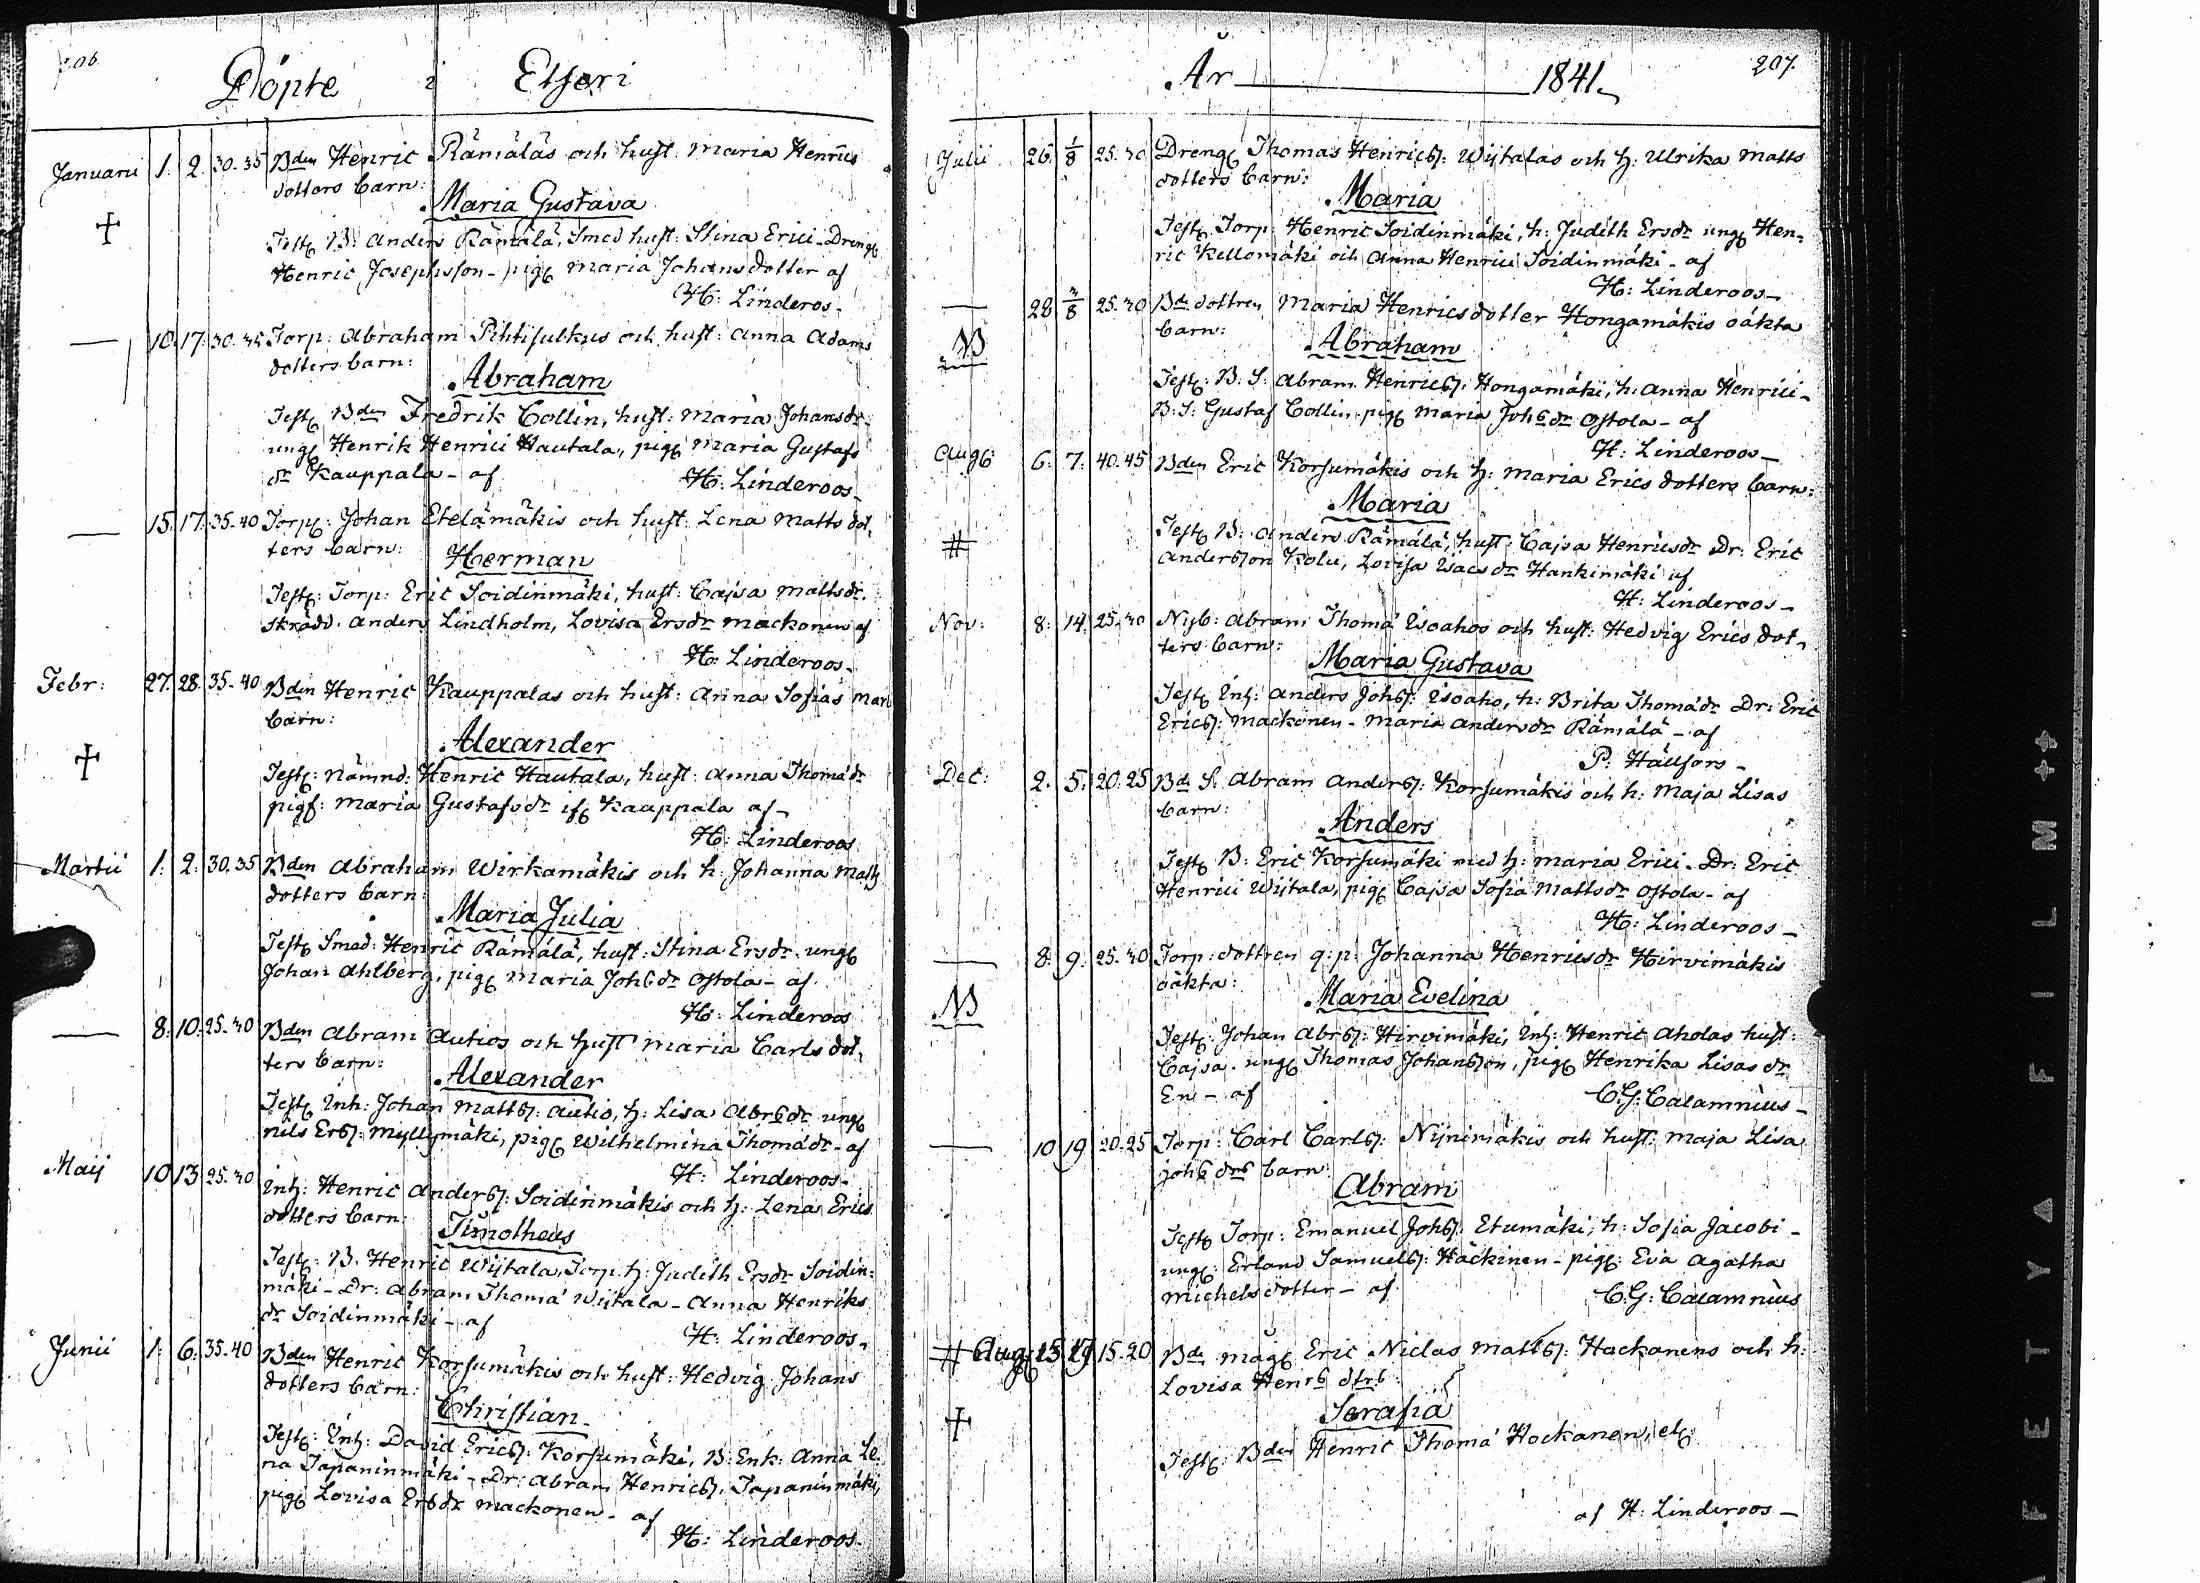 206.
Döpte i Etseri
Januarii 1. 2. 30-35 Bden Henric Rämäläs och hust. Maria Henrics
dotters barn:
Maria Gustava
Test. B. Anders Rämälä, Smed hust: Stina Erici - Dreng
Henric Josephsson - pig. Maria Johansdotter af
H: Linderos -
— 10. 17. 30-35 Torp: Abraham Pihtisulkus och hust: Anna Adams
dotters barn:
Abraham
Test. Bden Fredrik Collin, hust: Maria Johansdr.
ung. Henrik Henrici Hautala, pig. Maria Gustafs
dr Kauppala - af H: Linderoos -
— 15. 17. 35-40 Torp: Johan Etelämäkis och hust: Lena Matts dot.
ters barn:
Herman
Test: Torp: Eric Soidinmäki, hust: Cajsa Mattsdr.
skrädd. Anders Lindholm, Lovisa Ersdr Mackonen af
H: Linderoos -
Febr: 27. 28. 35-40 Bden Henric Kauppalas och hust: Anna Sofias
barn:
Alexander
Test: Nämnd: Henric Hautala, hust: Anna Thomädr
pig: Maria Gustafsdr Kauppala af -
H: Linderoos
Martii 1. 2. 30.35 Bden Abraham Wirkamäkis och h: Johanna Matts
dotters barn:
Maria Julia
Test. Smed: Henric Rämälä, hust: Stina Ersdr. ung.
Johan Ahlberg, pig. Maria Johsdr Ostola - af
H: Linderoos
— 8. 10. 25-30 Bden Abram Autios och hust Maria Carls dot,
ters barn:
Alexander
Test. Inh: Johan Mattss: Autio, h: Lisa Abrsdr ung.
Nils Erss: Myllymäki, pig. Wilhelmina Thomädr - af
H: Linderoos -
Maij 10 13 25-30 Inh: Henric Anderss: Soidinmäkis och h: Lena Erics
dotters barn:
Timotheus
Test: B. Henric Wijtala, Torp. h: Judith Ersdr Soidin:
mäki - Dr: Abram Thomä Wijtala - Anna Henriks
dr Soidinmäki - af H: Linderoos -
Junii 1. 6. 35-40 Bden Henric Korsumäkis och hust: Hedvig Johans
dotters barn:
Christian -
Test: Inh: David Ericss: Korsumäki, B: Enk: Anna Le.
na Tapaninmäki - Dr: Abram Henricss. Tapaninmäki,
pig. Lovisa Ersdr Mackonen - af
H: Linderoos -
År 1841.
207.
Julii 26. 1/8 25.30 Dreng Thomas Henricss: Wijtalas och h: Ulrika Matts
dotters barn:
Maria
Test. Torp: Henric Soidinmäki, h: Judith Ersdr ung. Hen:
ric Kellomäki och Anna Henrici Soidinmäki - af
H: Linderoos -
— 28 3/8 25.30 Bde dottren Maria Henricsdotter Hongamäkis oäkta
barn:
Abraham
Test: B: S: Abram Henricss: Hongamäki, h: Anna Henrici -
B: S: Gustaf Collin - pig. Maria Johsdr Ostola - af
H: Linderoos -
Aug: 6. 7. 40.45 Bden Eric Korsumäkis och h: Maria Erics dotters barn:
Maria
Test. B: Anders Rämälä, hust: Cajsa Henricsdr Dr: Eric
Andersson Kolu, Lovisa Isacsdr Hankimäki af
H: Linderoos -
Nov: 8. 14. 25.30 Nyb: Abram Thomä Isoahos och hust: Hedvig Erics dot,
ters barn:
Maria Gustava
Test. Inh: Anders Johss: Isoaho, h: Brita Thomädr Dr: Eric
Ericss: Mackonen - Maria Andersdr Rämälä - af
P: Hällfors -
Dec: 2. 5. 20.25 Bde S: Abram Anderss: Korsumäkis och h: Maja Lisas
barn:
Anders
Test. B: Eric Korsumäki med h: Maria Erici - Dr: Eric
Henrici Wijtala, pig. Cajsa Sofia Mattsdr Ostola - af
H: Linderoos -
— 8. 9. 25.30 Torp: dottren q: p: Johanna Henricsdr Hirvimäkis
oäkta:
Maria Evelina
Test: Johan Abrss: Hirvimäki, Inh: Henric Aholas hust:
Cajsa. ung. Thomas Johansson, pig. Henrika Lisas dr
En - af C.G: Calamnius -
— 10 19 20-25 Torp: Carl Carlss: Nijnimäkis och hust: Maja Lisa
Johs drs barn:
Abram
Test. Torp: Emanuel Johss: Etumäki, h: Sofia Jacobi -
ung: Erland Samuelss: Häckinen - pig: Eva Agatha
Michelsdotter - af C.G: Calamnius
# Aug. 15 19 15-20 Bde mag. Eric Niclas Mattss: Hackanens och h:
Lovisa Henrs dtrs
Serafia
Test: Bden Henric Thomä Hockanen, etc:
af H: Linderoos -
A F E T Y A F I L M